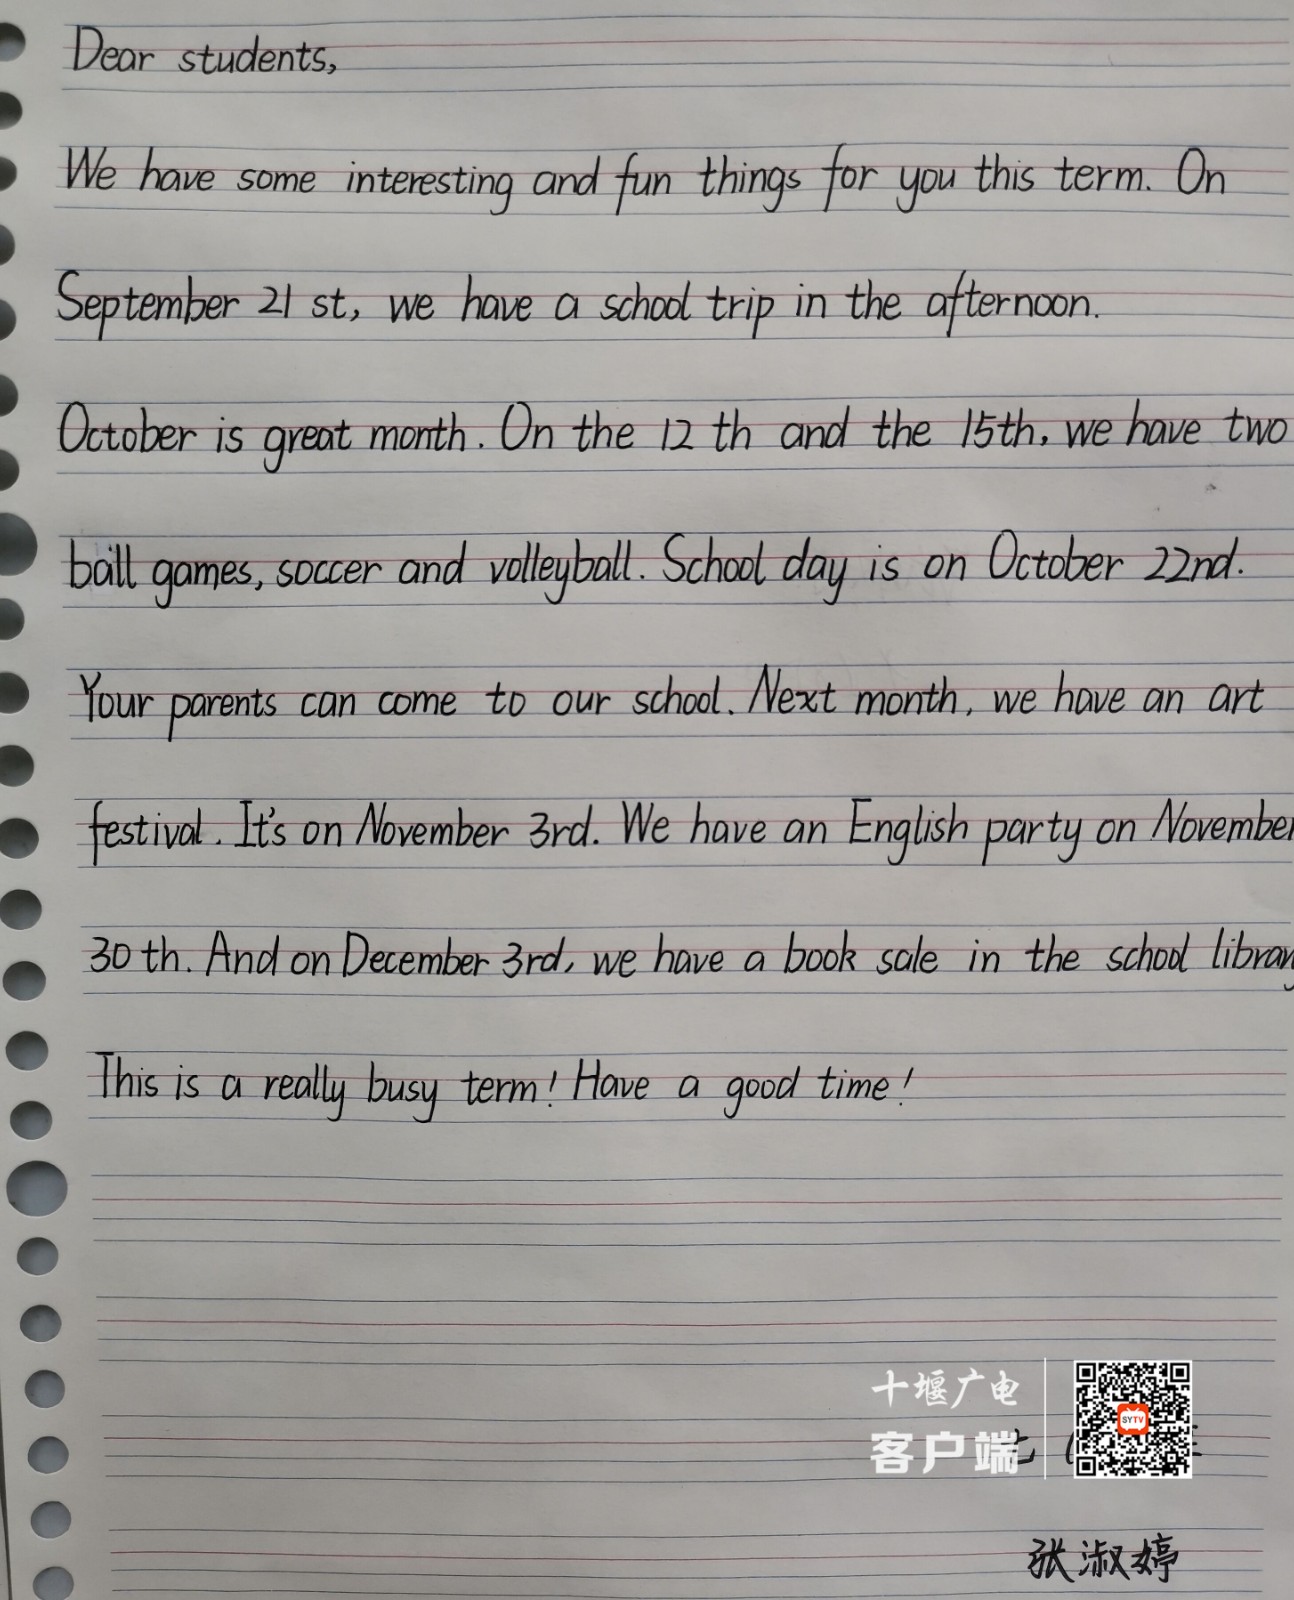 Dear students,
We have some interesting and fun things for you this term. On
September 21 st, we have a school trip in the afternoon.
October is great month. On the 12 th and the 15th, we have two
ball games, soccer and volleyball. School day is on October 22nd.
Your parents can come to our school. Next month, we have an art
festival. It's on November 3rd. We have an English party on November
30 th. And on December 3rd, we have a book sale in the school library
This is a really busy term! Have a good time!
十堰广电
客户端
SYTV
张淑婷